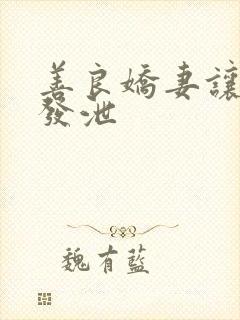 善良嬌妻讓
發泄
魏有藍